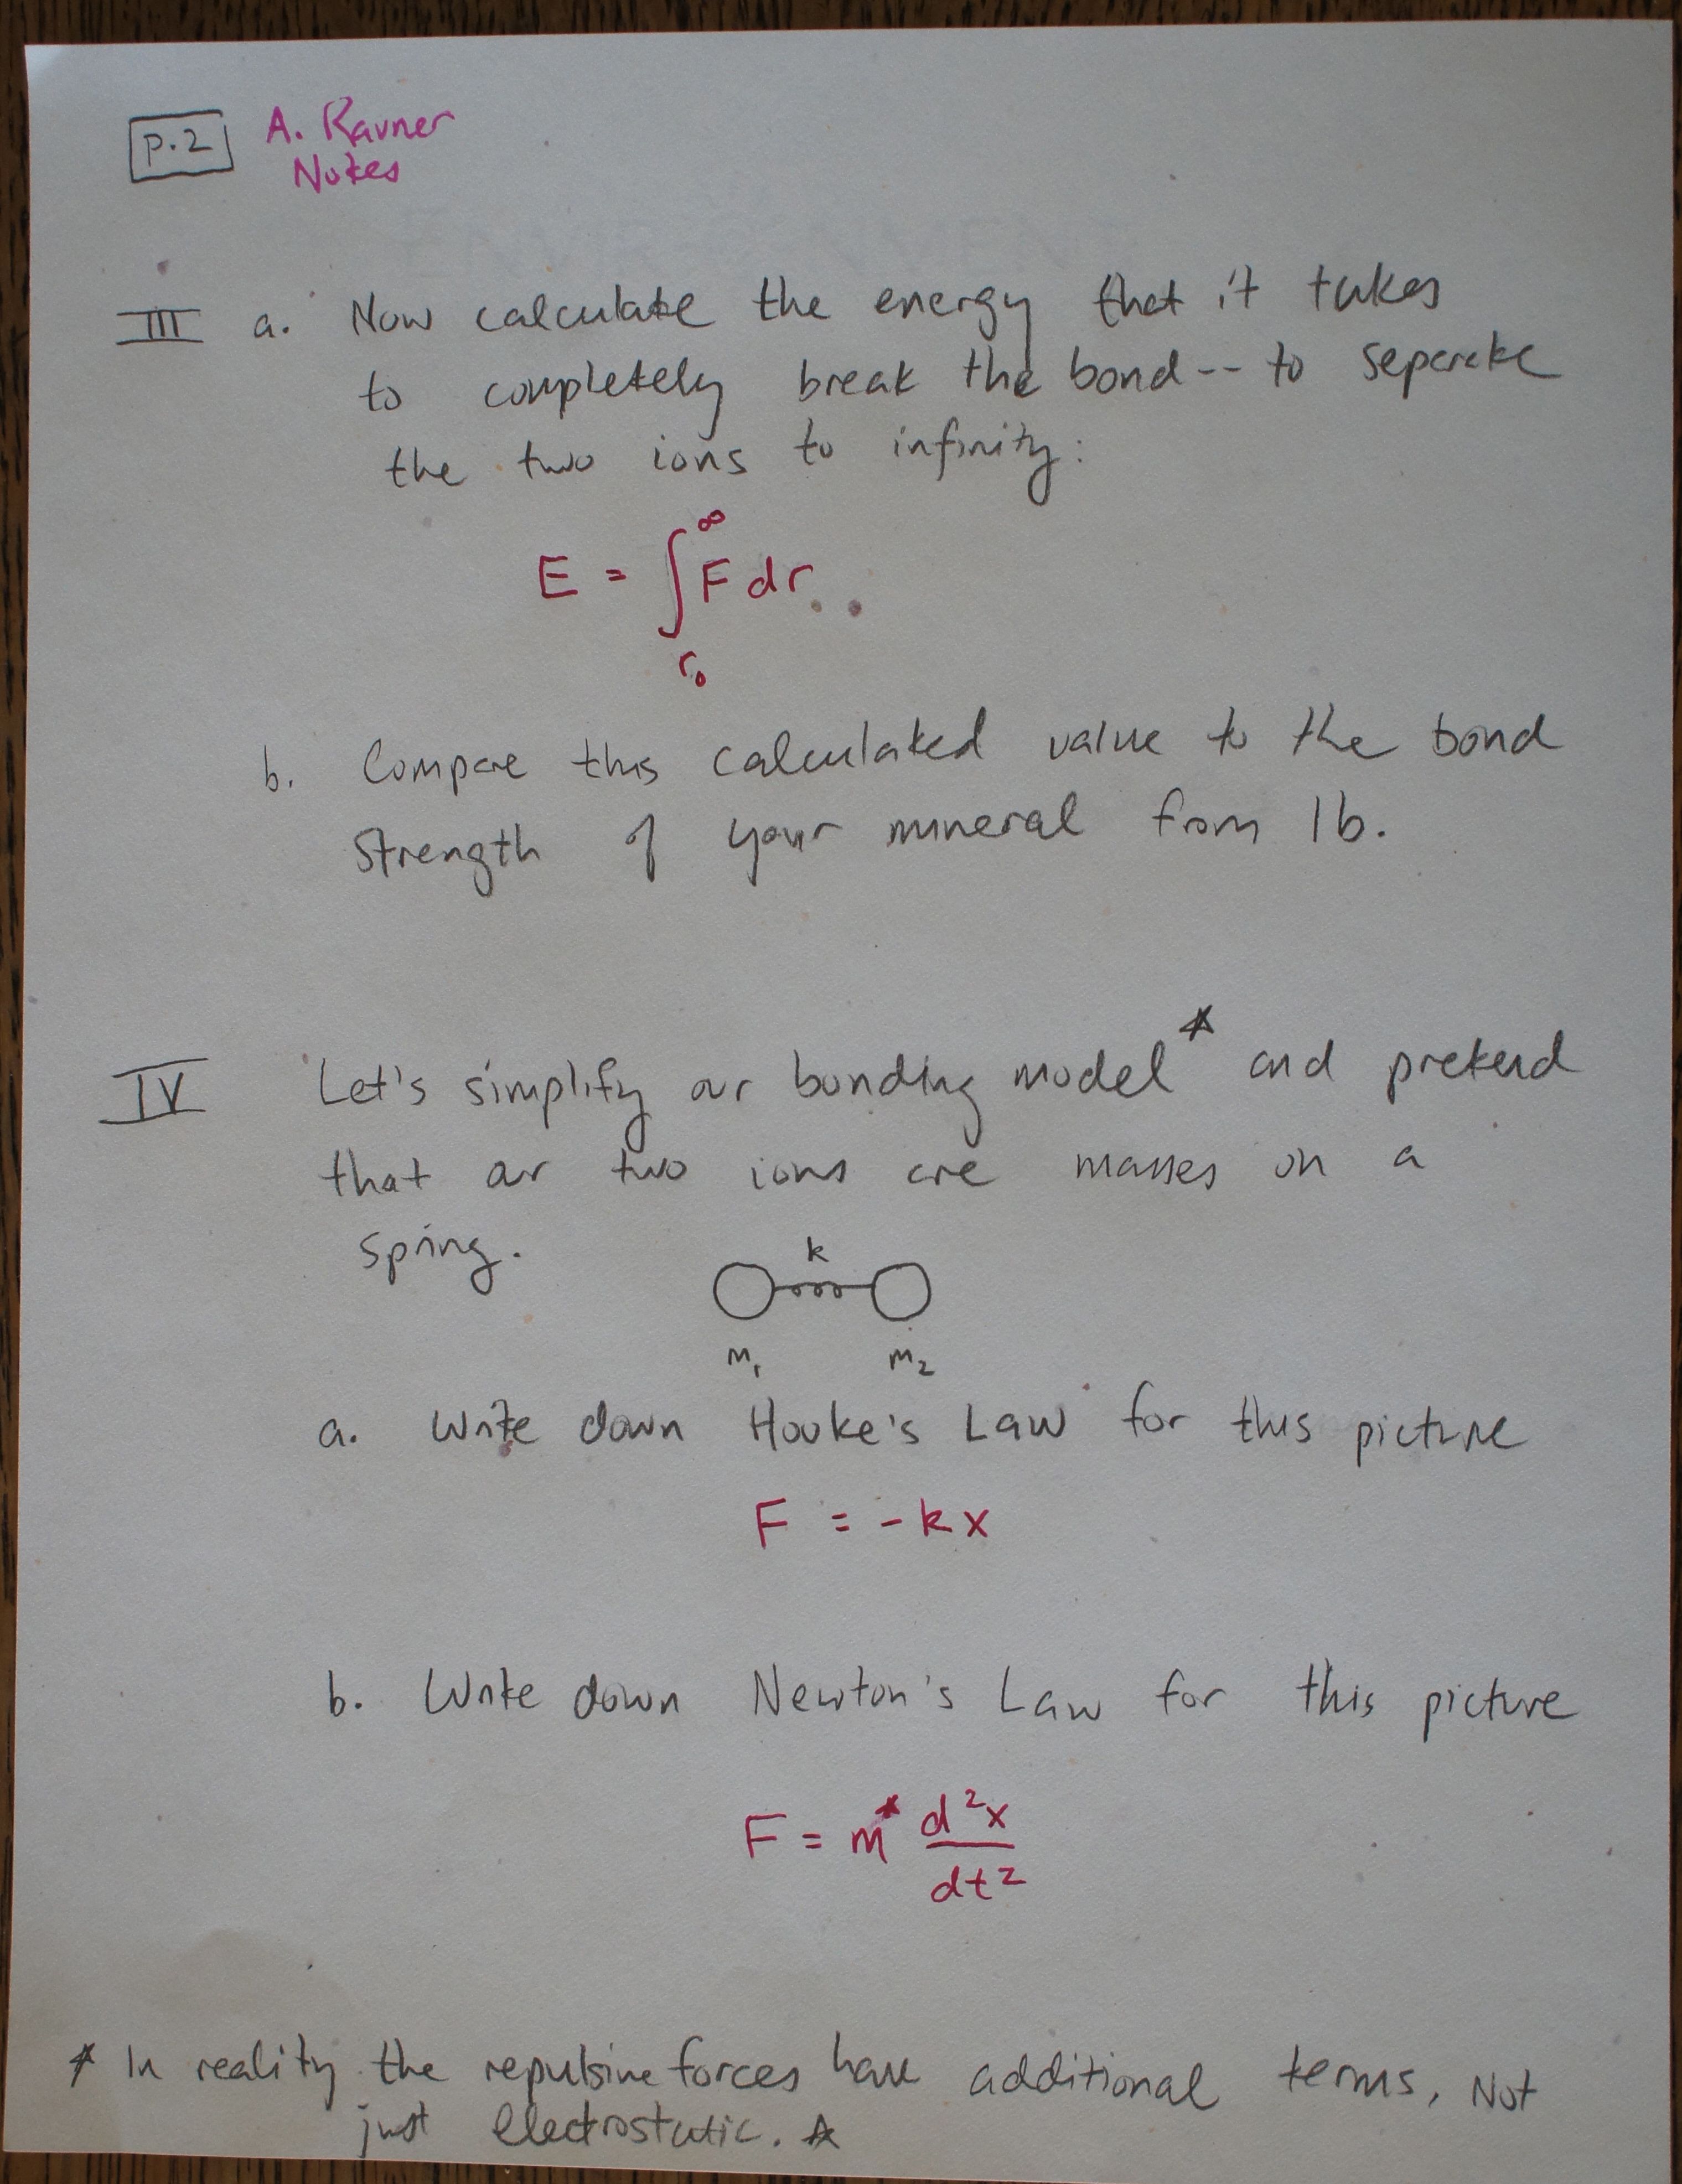 P.2 A. Ravner
Notes
III a. Now calculate the energy that it takes
to completely break the bond -- to separate
the two ions to infinity:
E = ∫ F dr
∞
r₀
b. Compare this calculated value to the bond
strength of your mineral from 1b.
IV Let's simplify our bonding model* and pretend
that our two ions are masses on a
spring.
k
m₁ m₂
a. Write down Hooke's Law for this picture
F = -kx
b. Write down Newton's Law for this picture
F = m* d²x
dt²
* In reality the repulsive forces have additional terms, Not
just electrostatic. *